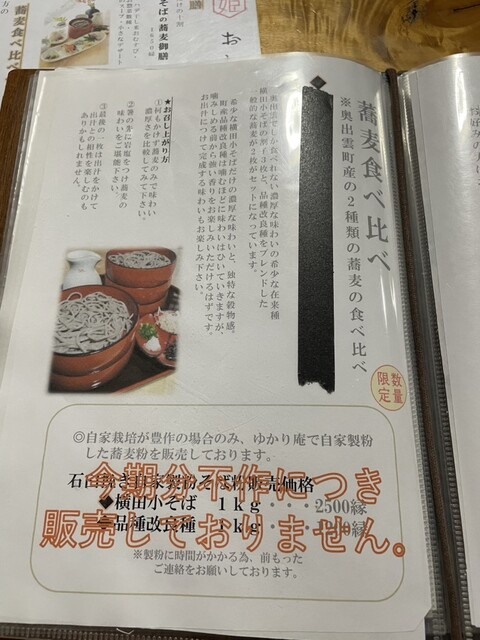 蕎麦食べ比べ
※奥出雲町産の2種類の蕎麦の食べ比べ
数量
限定
◆
奥出雲でしか食べれない濃厚な味わいの希少な在来種
横田小そばの割子3枚と、品種改良種をブレンドした
一般的な蕎麦が2枚がセットになっています。
希少な横田小そばだけの濃厚な味わいと、独特な穀物感。
町産品種改良種は噛むほどに味わいはひいていきますが、
噛みしめる前から強い香りをお楽しみいただけるはずです。
お出汁につけて完成する味わいもお楽しみ下さい。
★お召し上がり方
①何もかけず蕎麦のみで味わい
濃厚さを比較してみて下さい。
②箸の先に岩塩をつけ蕎麦の
味わいをご堪能下さい。
③最後の一枚は出汁をかけて
出汁との相性を楽しむのも
ありかもしれません。
◎自家栽培が豊作の場合のみ、ゆかり庵で自家製粉
した蕎麦粉を販売しております。
石臼挽き自家製粉そば粉販売価格
◆横田小そば 1kg・・・2500縁
品種改良種 1kg・・
今期分不作につき
販売しておりません。
※製粉に時間がかかる為、前もった
ご連絡をお願いしております。
そばの蕎麦御膳
蕎麦食べ比
姫
お